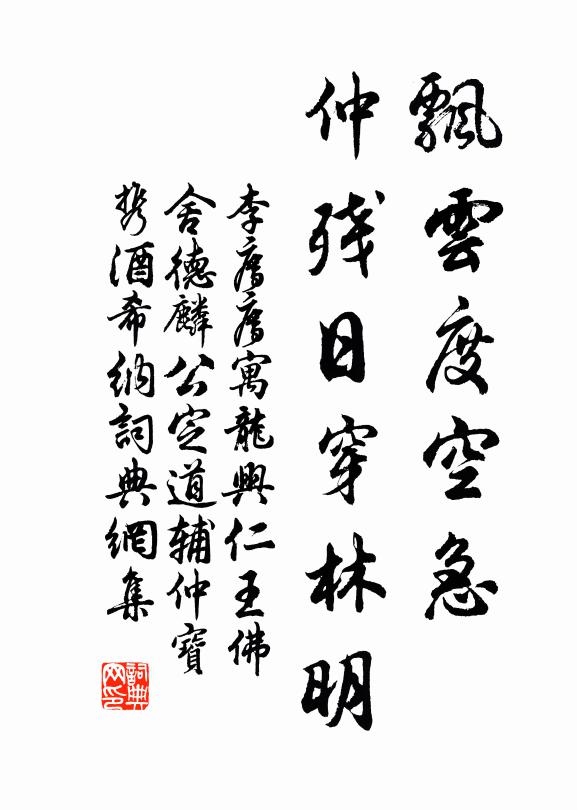 飄雲度空急
仲残日穿林明
李廌廌寓龍興仁王佛
舍德麟公定道輔仲寶
携酒希納詞典網集
詞典网印